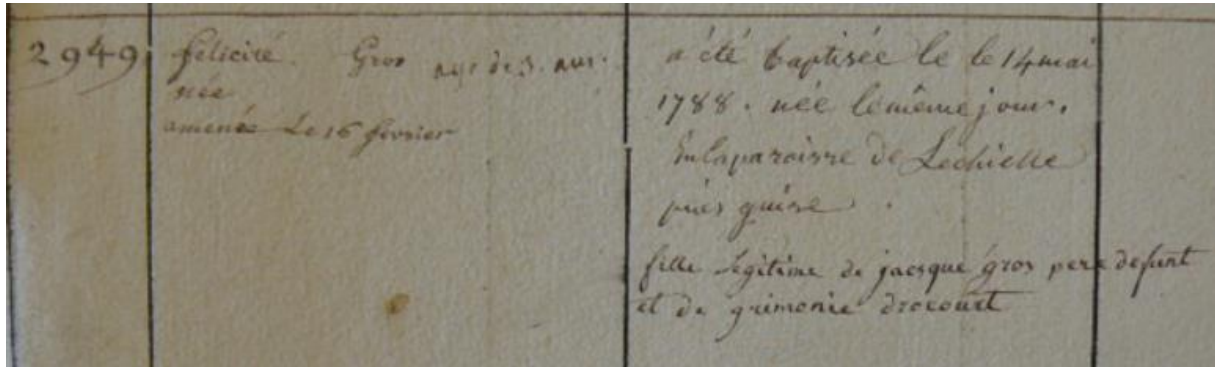 2949
félicité. Gros age de 3. ans.
née
amenée Le 16 fevrier
a été baptisée le le 14 mai
1788. née le même jour.
En la paroisse de Lechielle
près guise.
fille Legitime de jacsque gros pere defunt
et de grimonie drocourt